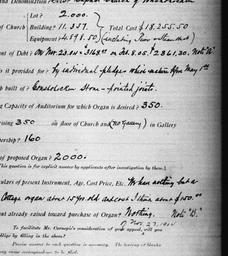 Lot? 2.000.
Building? 11.357. Total Cost $18.255.50
Equipment? 4.898.50 (including
ent of Debt? On Nov. 23.04 = 3168.00 on Feb. 8.05 = 2861.30. Note "A"
is it provided for? By individual pledges which mature May 1st
h built of? Limestone Stone - pointed joints.
g Capacity of Auditorium for which Organ is desired? 350.
rising 350 on floor of Church and (no Gallery) in Gallery
bership? 160
of proposed Organ? 2000.
This question is for explicit answer by applicants after investigation by them.]
culars of present Instrument, Age, Cost Price, Etc. We have nothing but a
Cottage organ about 15 yrs old and cost I think about $100.00
nt already raised toward purchase of Organ? Nothing. Note "B".
Nov. 23, 1904
To facilitate Mr. Carnegie's consideration of your appeal, will you
oblige by filling in the above?
Please answer to each question is necessary. The leaving of blanks